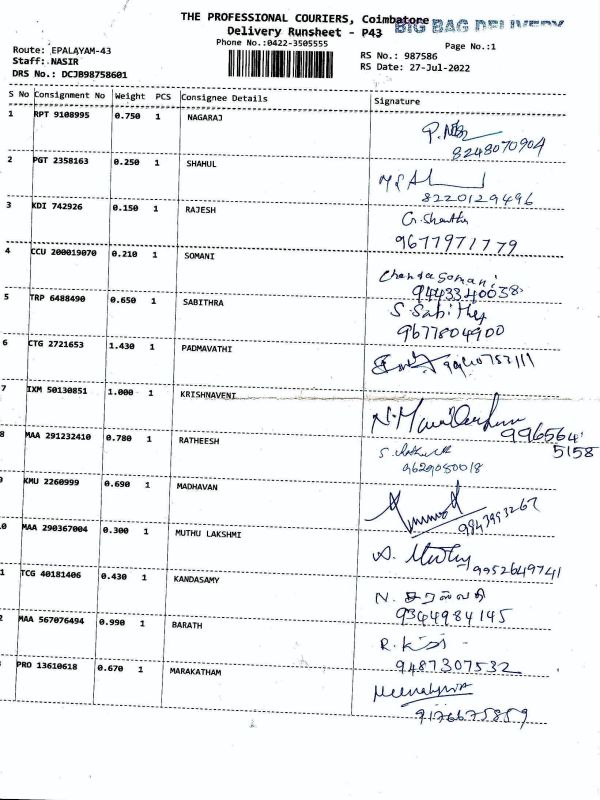 THE PROFESSIONAL COURIERS, Coimbatore
BIG BAG DELIVERY
Delivery Runsheet - P43
Phone No.:0422-3505555
Page No.:1
Route: EPALAYAM-43
RS No.: 987586
Staff: NASIR
RS Date: 27-Jul-2022
DRS No.: DCJB98758601
S No Consignment No Weight PCS Consignee Details Signature
1 RPT 9108995 0.750 1 NAGARAJ
8248070904
2 PGT 2358163 0.250 1 SHAHUL
8220129496
3 KDI 742926 0.150 1 RAJESH
9677971779
4 CCU 200019070 0.210 1 SOMANI Chanda Somani
9443340038
5 TRP 6488490 0.650 1 SABITHRA S. Sabithra
9677804900
6 CTG 2721653 1.430 1 PADMAVATHI
7 IXM 50130851 1.000 1 KRISHNAVENI
996564
5158
8 MAA 291232410 0.780 1 RATHEESH
9629080018
9 KMU 2260999 0.690 1 MADHAVAN
9843953267
0 MAA 290367004 0.300 1 MUTHU LAKSHMI A. Muthu 9952649741
1 TCG 40181406 0.430 1 KANDASAMY
9344984145
2 MAA 567076494 0.990 1 BARATH
9487307532
PRO 13610618 0.670 1 MARAKATHAM
9176675859